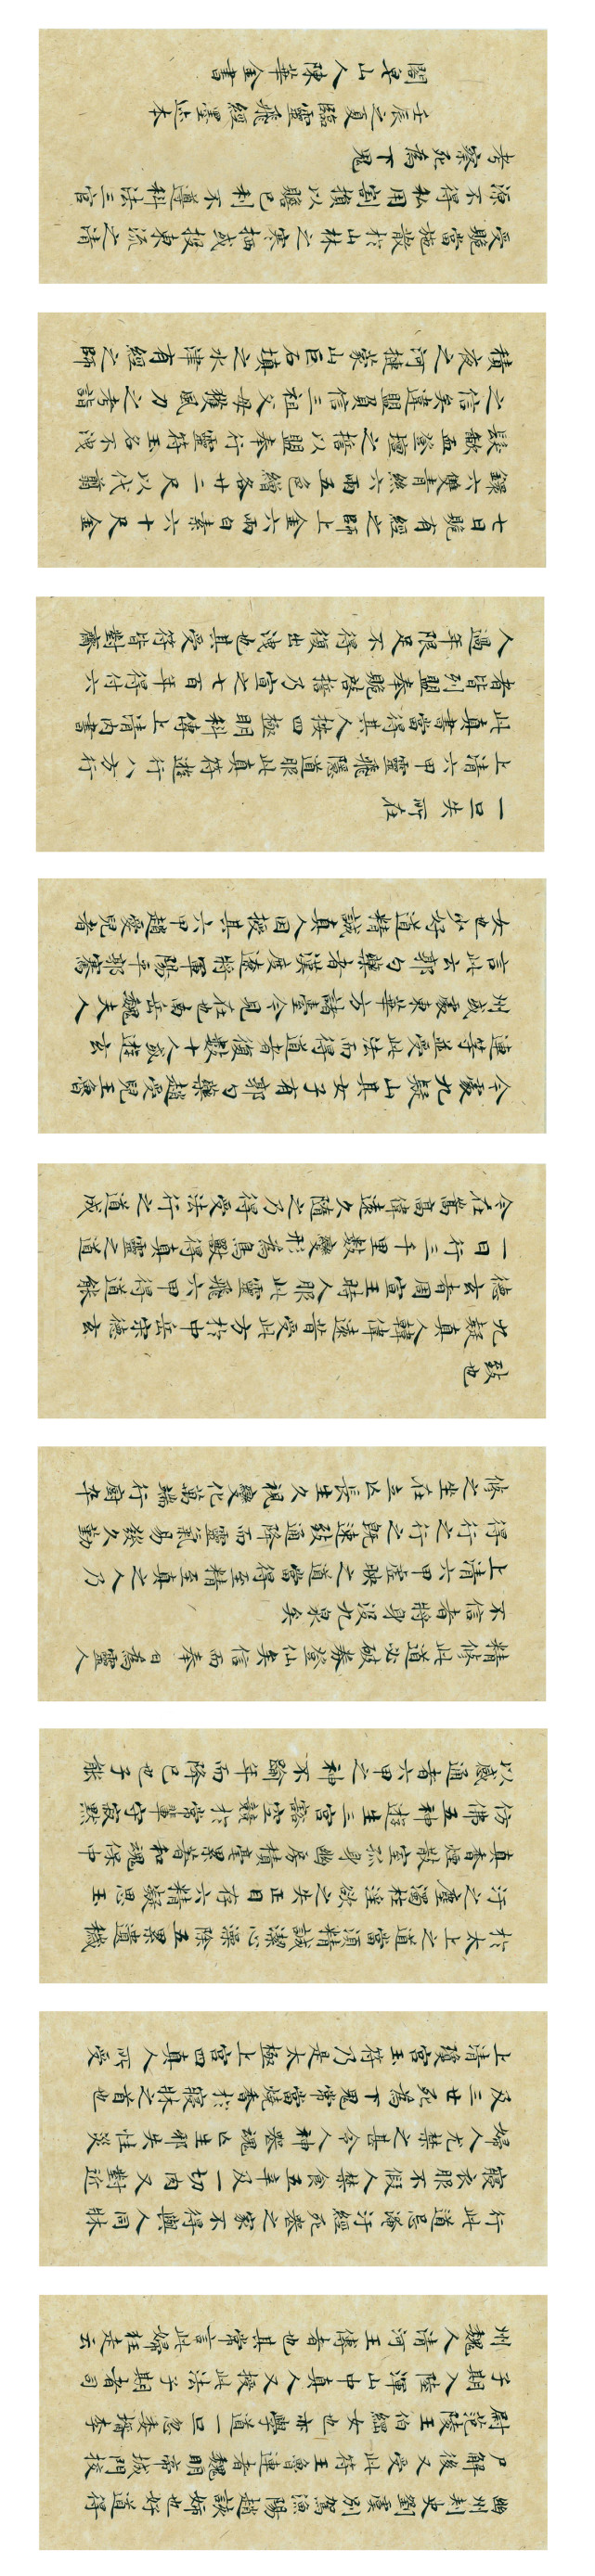 幽州刺史劉虞別駕漁陽趙該姊也好道得
尸解後又受此符王魯連者魏明帝城門校
尉范陵王伯綱女也亦學道一旦忽委壻李
子期入陸渾山中真人又授此法子期者司
州魏人清河王傳者也其常言此婦狂走云
行此道忌淹汙經死喪之家不得與人同牀
寢衣服不假人禁食五辛及一切肉又對近
婦人尤禁之甚令人神喪魂亡生邪失性災
及三世死為下鬼常當燒香於寢牀之首也
上清瓊宮玉符乃是太極上宮四真人所受
於太上之道當須精誠潔心澡除五累遺穢
汙之塵濁杜淫欲之失正目存六精凝思玉
真香煙散室孤身幽房積毫累著和魂保中
仿佛五神遊生三宮豁空競於常輩守寂默
以感通者六甲之神不踰年而降已也子能
精修此道必破券登仙矣信而奉者為靈人
不信者將身沒九泉矣
上清六甲虛映之道當得至精至真之人乃
得行之行之既速致通降而靈氣易發久勤
修之坐在立亡長生久視變化萬端行廚卒
致也
九疑真人韓偉遠昔受此方於中岳宋德玄
德玄者周宣王時人服此靈飛六甲得道能
一日行三千里數變形為鳥獸得真靈之道
今在嵩高偉遠久隨之乃得受法行之道成
今處九疑山其女子有郭勺藥趙愛兒王魯
連等並受此法而得道者復數十人或遊玄
州或處東華方諸臺今見在也南岳魏夫人
言此云郭勺藥者漢度遼將軍陽平郭騫
女也少好道精誠真人因授其六甲趙愛兒者
一旦失所在
上清六甲靈飛隱道服此真符遊行八方行
此真書當得其人按四極明科傳上清內書
者皆列盟奉貺啓誓乃宣之七百年得付六
人過年限足不得復出洩也其受符皆對齋
七日貺有經之師上金六兩白素六十尺金
鐶六雙青絲六兩五色繒各廿二尺以代翦
髮歃血登壇之誓以盟奉行靈符玉名不洩
之信矣違盟負信三祖父母獲風刀之考詣
積夜之河揵蒙山巨石填之水津有經之師
受貺當施散於山林之寒栖或投東流之清
源不得私用割損以贍已利不遵科法三官
考察死為下鬼
壬辰之夏臨靈飛經墨迹本
閤皂山人陳華金書